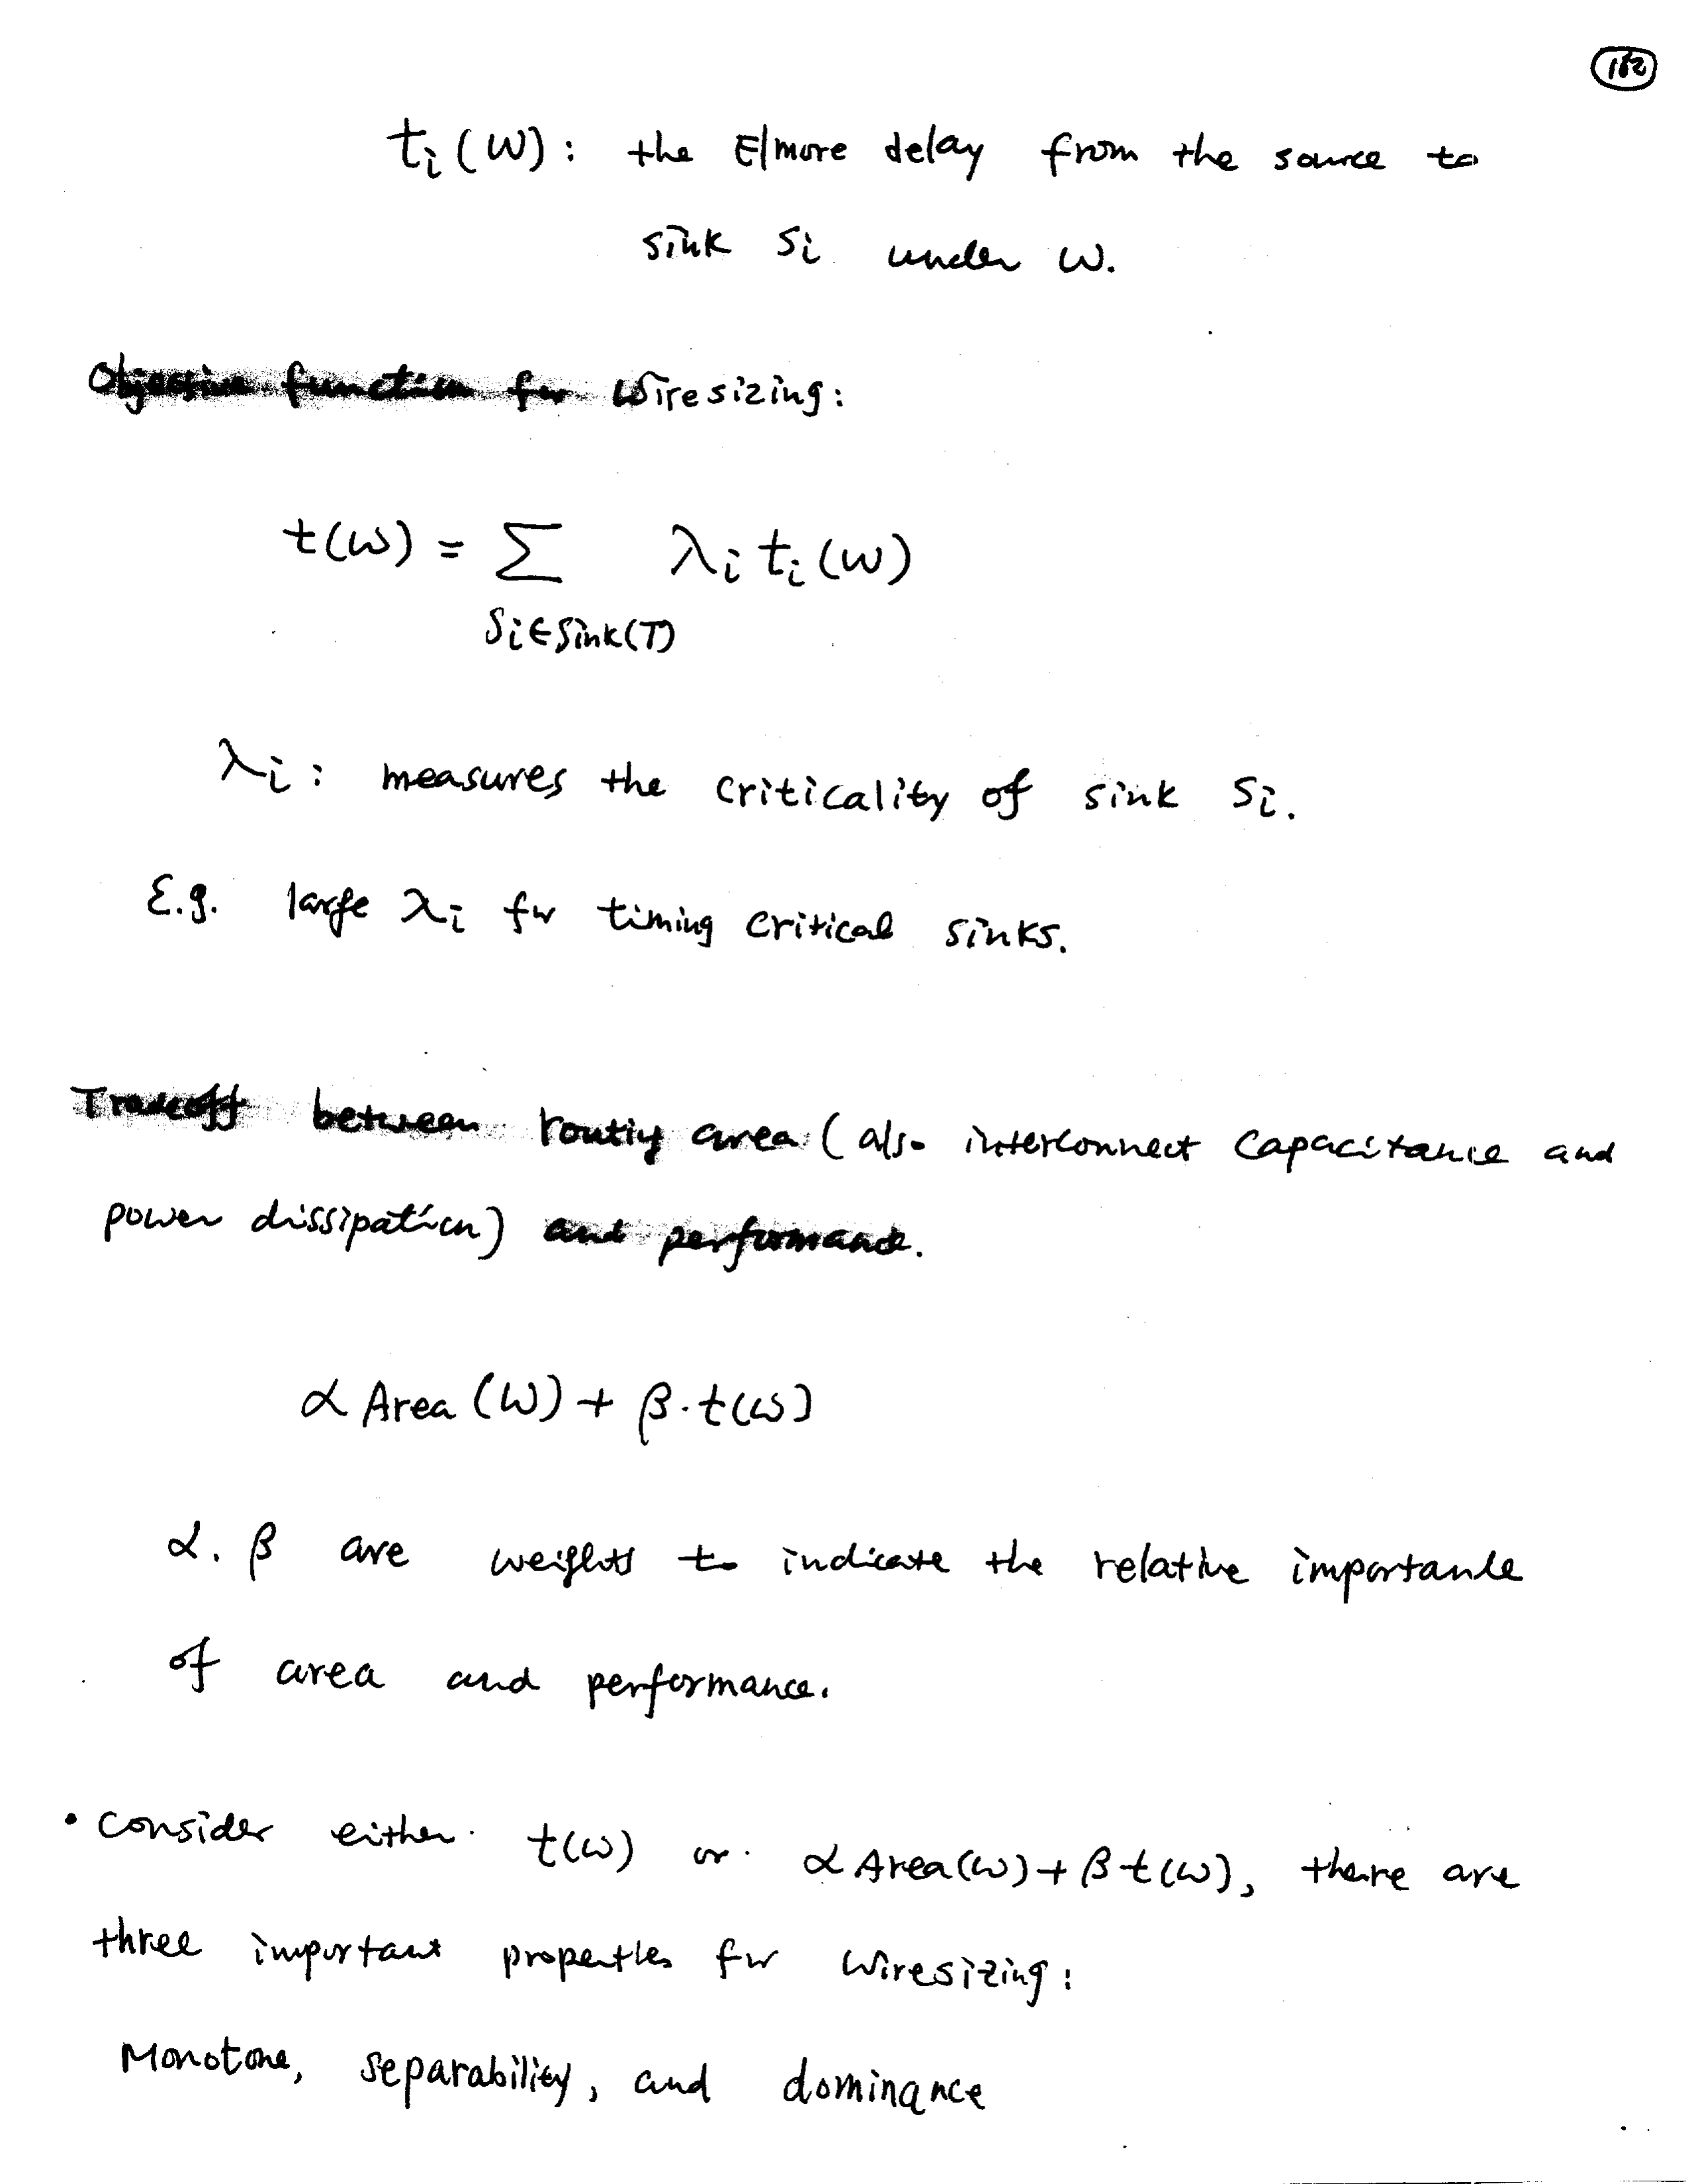 162
tᵢ(W): the Elmore delay from the source to
sink Sᵢ under W.
Objective function for Wiresizing:
t(W) = Σ λᵢ tᵢ(W)
Sᵢ∈Sink(T)
λᵢ: measures the criticality of sink Sᵢ.
E.g. large λᵢ for timing critical sinks.
Tradeoff between routing area (also interconnect capacitance and
power dissipation) and performance.
α Area (W) + β·t(W)
α. β are weights to indicate the relative importance
of area and performance.
• Consider either t(W) or α Area(W) + β t(W), there are
three important properties for Wiresizing:
Monotone, separability, and dominance